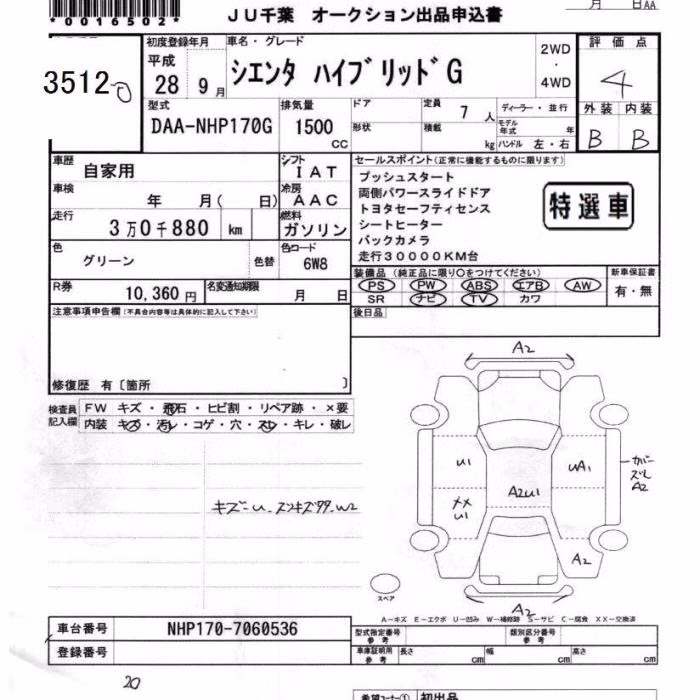 *0016502*
JU千葉 オークション出品申込書
月 日AA
3512
初度登録年月
平成
28 9月
車名・グレード
シエンタ ハイブリッドG
2WD
・
4WD
評価点
4
外装 内装
B B
型式
DAA-NHP170G
排気量
1500
CC
ドア
形状
定員
7 人
積載
kg
ディーラー・並行
モデル
年式
年
ハンドル 左・右
車歴
自家用
シフト
IAT
車検
年 月( 日)
冷房
AAC
走行
3万0千880 km
燃料
ガソリン
色
グリーン
色替
色コード
6W8
R券
10,360円
名変通知期限
月 日
セールスポイント(正常に機能するものに限ります)
プッシュスタート
両側パワースライドドア
トヨタセーフティセンス
シートヒーター
バックカメラ
走行30000KM台
特選車
装備品 (純正品に限り○をつけてください)
PS PW ABS エアB AW
SR ナビ TV カワ
新車保証書
有・無
後日品
注意事項申告欄(不具合内容等は具体的に記入して下さい)
修復歴 有〔箇所 〕
検査員
記入欄
FW キズ・飛石・ヒビ割・リペア跡・×要
内装 キズ・汚レ・コゲ・穴・スレ・キレ・破レ
A2
U1
UA1
カバー
ズレ
A2
A2U1
XX
U1
A2
A2
スペア
A-キズ E-エクボ U-凹み W-補修跡 S-サビ C-腐食 XX-交換済
車台番号
NHP170-7060536
登録番号
型式指定番号
参考
類別区分番号
参考
車庫証明用
参考
長さ cm
幅 cm
高さ cm
20
希望コーナー① 初出品